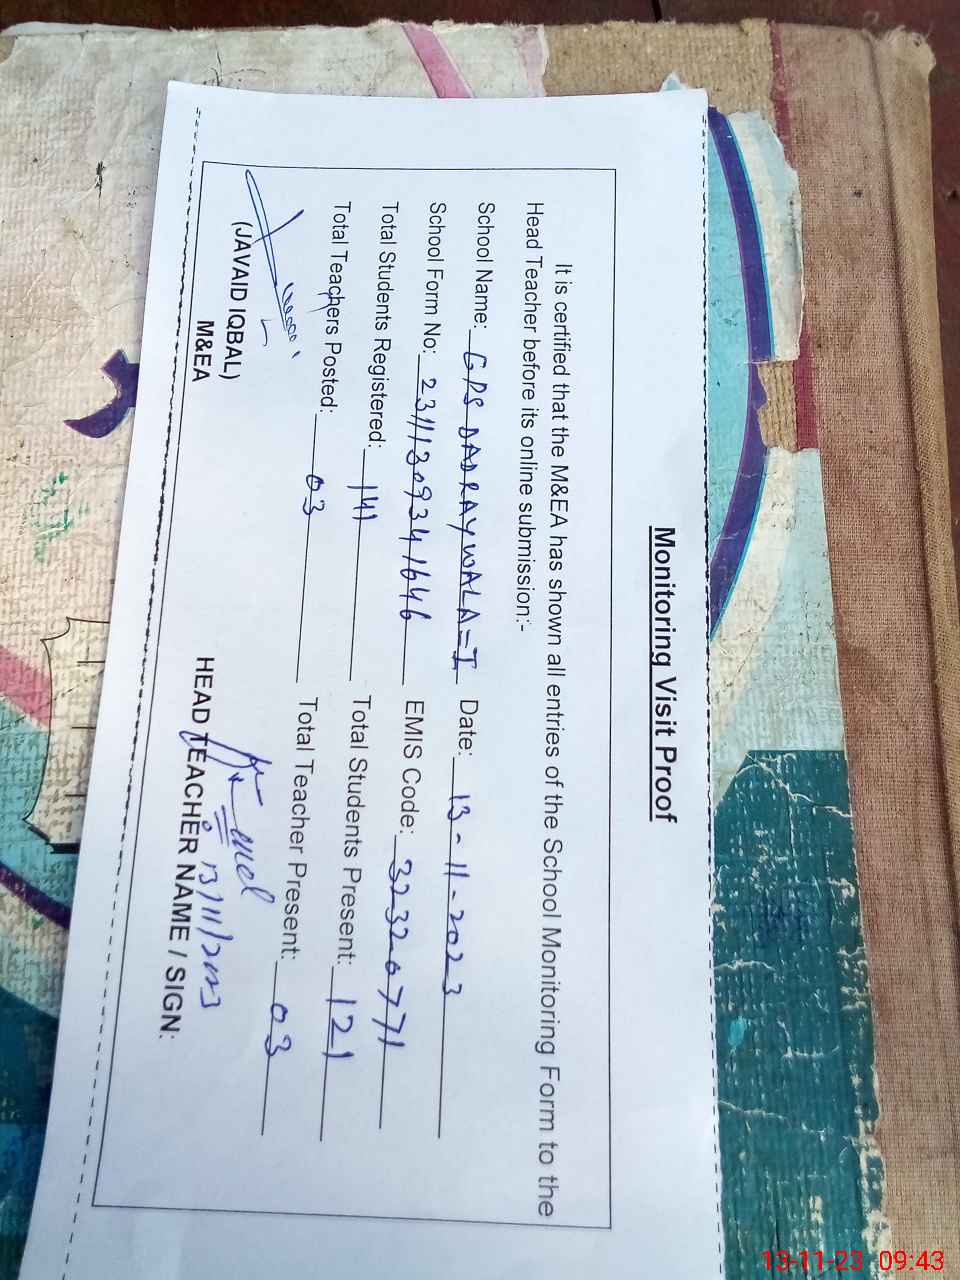 Monitoring Visit Proof
It is certified that the M&EA has shown all entries of the School Monitoring Form to the
Head Teacher before its online submission:-
School Name: GPS DADRAYWALA=I Date: 13-11-2023
School Form No: 23111309341646 EMIS Code: 32320771
Total Students Registered: 141 Total Students Present: 121
Total Teachers Posted: 03 Total Teacher Present: 03
13/11/2023
(JAVAID IQBAL)
M&EA
HEAD TEACHER NAME / SIGN:
13-11-23 09:43